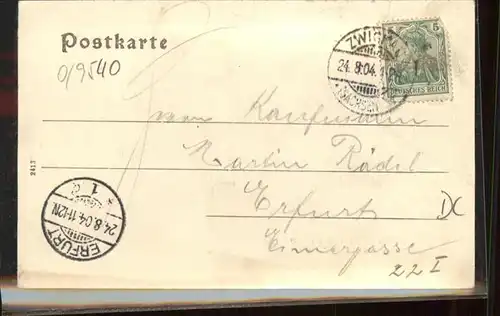 Postkarte
0/9540
ZWICKAU
24.8.04.
(SACHSEN)
5
DEUTSCHES REICH
Herrn Kaufmann
Martin Rädel
Erfurt
DC
Eimergasse
22 I
2417
ERFURT
24.8.04.11-12N.
* 1 d